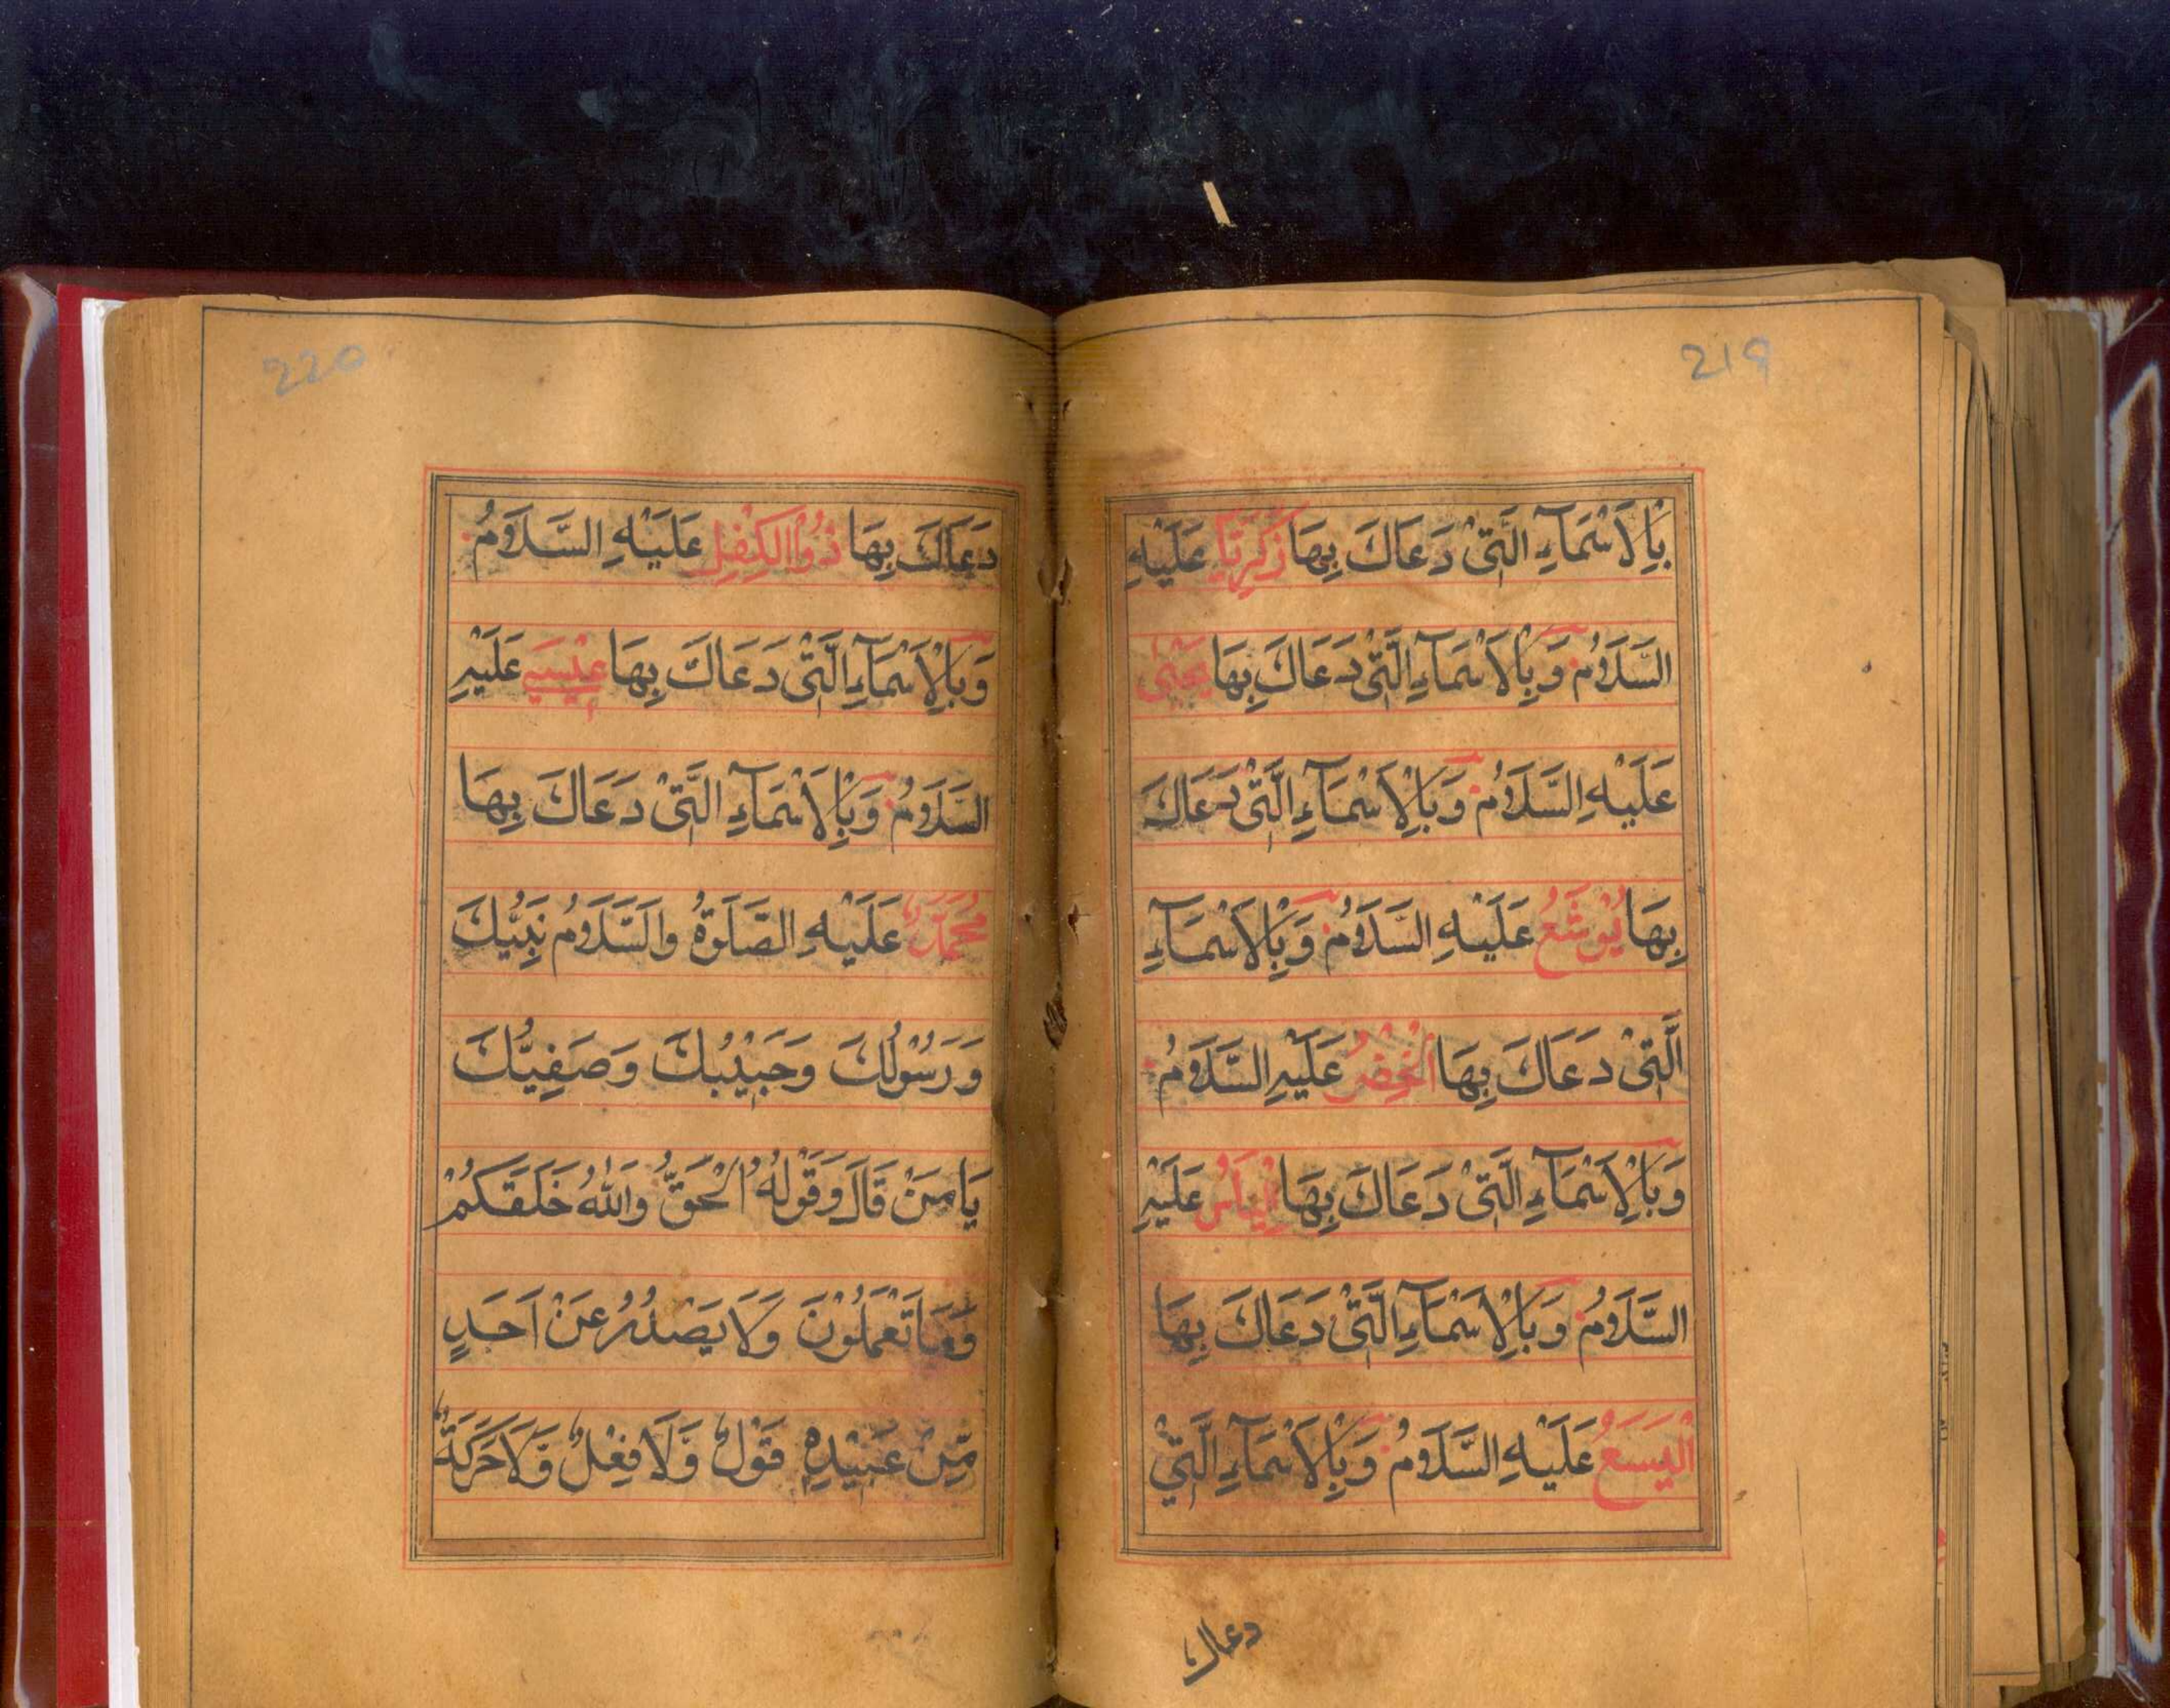 219
بِالْاَسْمَآءِ الَّتِیْ دَعَاكَ بِهَا زَكَرِيَّا عَلَيْهِ
السَّلَامُ وَبِالْاَسْمَآءِ الَّتِیْ دَعَاكَ بِهَا يَحْيٰى
عَلَيْهِ السَّلَامُ وَبِالْاَسْمَآءِ الَّتِیْ دَعَاكَ
بِهَا يُوْشَعُ عَلَيْهِ السَّلَامُ وَبِالْاَسْمَآءِ
الَّتِیْ دَعَاكَ بِهَا الْخِضْرُ عَلَيْهِ السَّلَامُ
وَبِالْاَسْمَآءِ الَّتِیْ دَعَاكَ بِهَا اِلْيَاسُ عَلَيْهِ
السَّلَامُ وَبِالْاَسْمَآءِ الَّتِیْ دَعَاكَ بِهَا
الْيَسَعُ عَلَيْهِ السَّلَامُ وَبِالْاَسْمَآءِ الَّتِیْ
دعاك
220
دَعَاكَ بِهَا ذُوالْكِفْلِ عَلَيْهِ السَّلَامُ
وَبِالْاَسْمَآءِ الَّتِیْ دَعَاكَ بِهَا عِيْسٰى عَلَيْهِ
السَّلَامُ وَبِالْاَسْمَآءِ الَّتِیْ دَعَاكَ بِهَا
مُحَمَّدٌ عَلَيْهِ الصَّلٰوةُ وَالسَّلَامُ نَبِيُّكَ
وَرَسُوْلُكَ وَحَبِيْبُكَ وَصَفِيُّكَ
يَا مَنْ قَالَ وَقَوْلُهُ الْحَقُّ وَاللّٰهُ خَلَقَكُمْ
وَمَا تَعْمَلُوْنَ وَلَا يَصْدُرُ عَنْ اَحَدٍ
مِّنْ عَبِيْدِهٖ قَوْلٌ وَّلَا فِعْلٌ وَّلَا حَرَكَةٌ